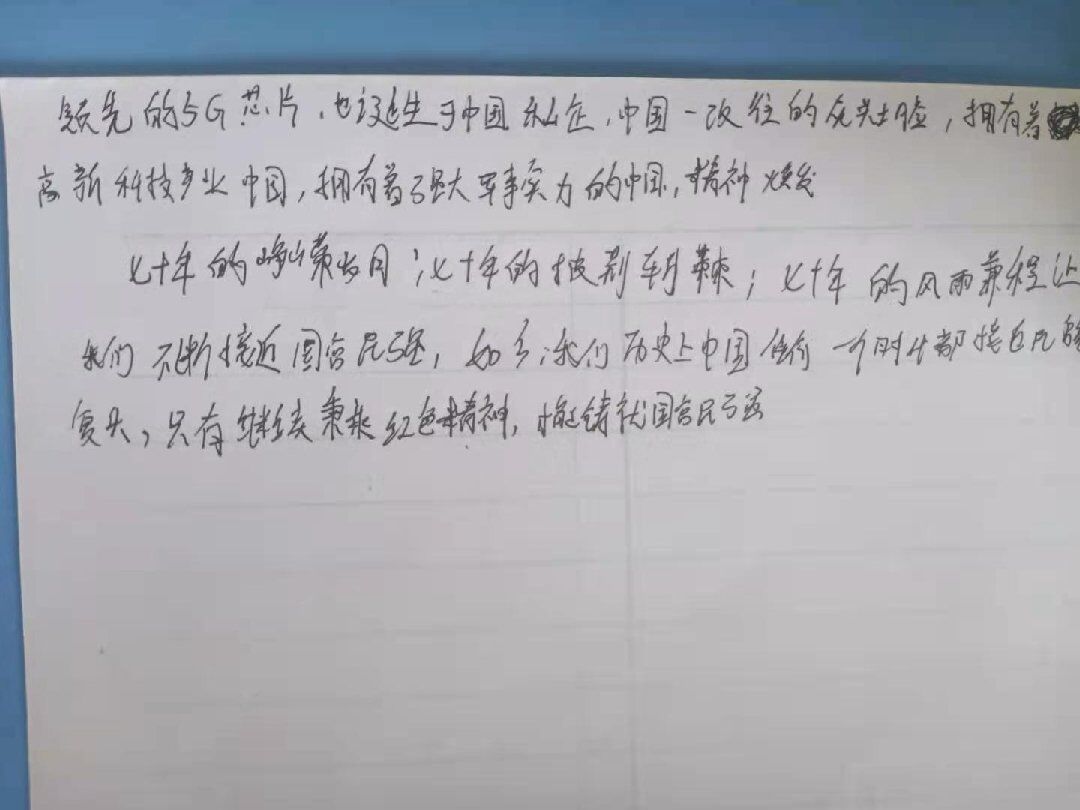 领先的5G芯片,也诞生于中国私企,中国一改往的灰头土脸,拥有着
高新科技产业中国,拥有着强大军事实力的中国,精神焕发
七十年的峥嵘岁月;七十年的披荆斩棘;七十年的风雨兼程让
我们不断接近国富民强,如今,我们历史上中国任何一个时什都接近民族
复兴,只有继续秉承红色精神,才能铸就国富民强